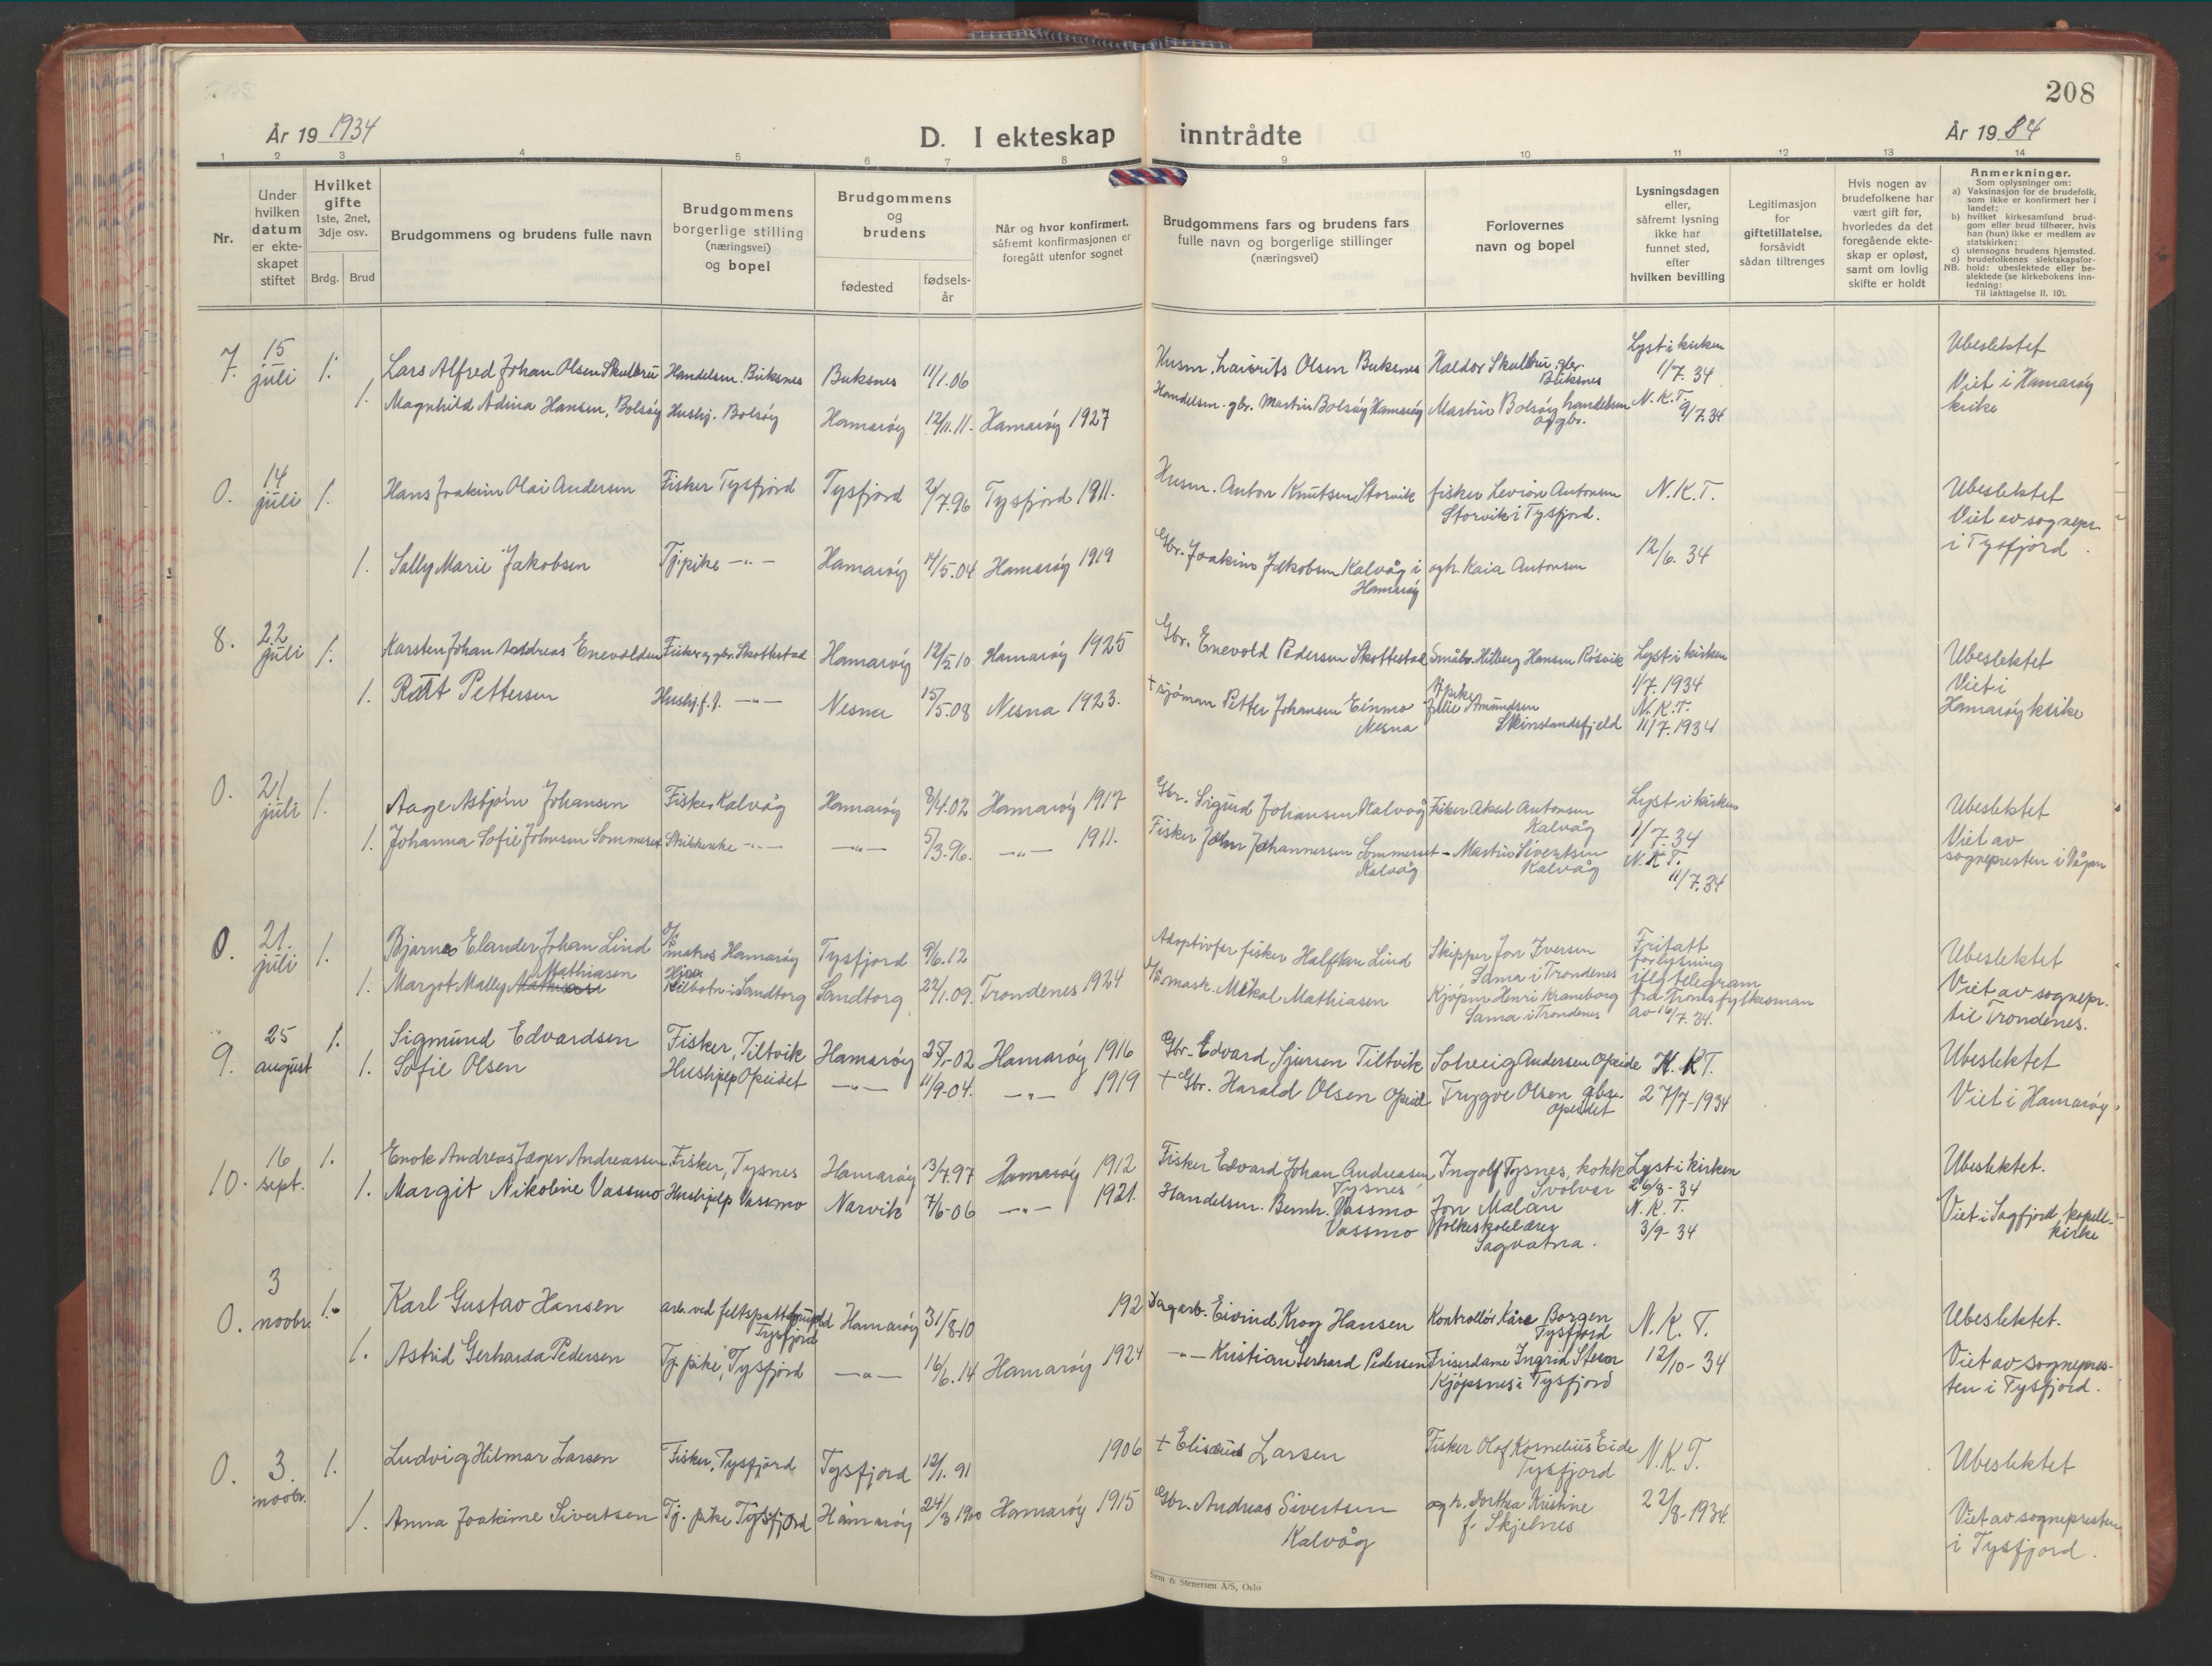 208
År 19 1934
D. I ekteskap inntrådte
År 19 34
1 2 3 4 5 6 7 8 9 10 11 12 13 14
Nr.
Under hvilken datum er ekteskapet stiftet
Hvilket gifte
1ste, 2net, 3dje osv.
Brdg. Brud
Brudgommens og brudens fulle navn
Brudgommens borgerlige stilling (næringsvei) og bopel
Brudgommens og brudens
fødested
fødselsår
Når og hvor konfirmert, såfremt konfirmasjonen er foregått utenfor sognet
Brudgommens fars og brudens fars fulle navn og borgerlige stillinger (næringsvei)
Forlovernes navn og bopel
Lysningsdagen eller, såfremt lysning ikke har funnet sted, efter hvilken bevilling
Legitimasjon for giftetillatelse, forsåvidt sådan tiltrenges
Hvis nogen av brudefolkene har vært gift før, hvorledes da det foregående ekteskap er opløst, samt om lovlig skifte er holdt
Anmerkninger.
Som oplysninger om:
a) Vaksinasjon for de brudefolk, som ikke er konfirmert her i landet;
b) hvilket kirkesamfund brudgom eller brud tilhører, hvis han (hun) ikke er medlem av statskirken;
c) utensogns brudens hjemsted.
d) brudefolkenes slektskapsforhold: ubeslektede eller beslektede (se kirkebokens innledning:
NB.
Til iakttagelse II. 10).
7. 15 juli 1. Lars Alfred Johan Olsen Skulbru Handelsm. Buksnes Buksnes 11/1.06 Husm. Laurits Olsen Buksnes Haldor Skulbru, gbr. Buksnes Lyst i kirken 1/7. 34 Ubeslektet
1. Magnhild Adina Hansen, Bolsøy Hushj. Bolsøy Hamarøy 12/11.11. Hamarøy 1927 Handelsm. gbr. Martin Bolsøy Hamarøy Martin Bolsøy handelsm og gbr. N.K.T. 9/7.34 Viet i Hamarøy kirke
0. 14 juli 1. Hans Joakim Olai Andersen Fisker Tysfjord Tysfjord 2/7.96 Tysfjord 1911. Husm. Anton Knutsen Storvik fisker Levion Antonsen Storvik i Tysfjord. N.K.T. Ubeslektet
Viet av sognepr. i Tysfjord.
1. Sally Marie Jakobsen Tj.pike -"- Hamarøy 4/5.04 Hamarøy 1919 Gbr. Joakim Jakobsen Kalvåg i Hamarøy og h. Kaia Antonsen 12/6. 34
8. 22 juli 1. Karsten Johan Andreas Enevoldsen Fisker og gbr. Skottestad Hamarøy 12/5.10 Hamarøy 1925 Gbr. Enevold Pedersen Skottestad Småbr. Hilberg Hansen Røsvik Lyst i kirken 1/7. 1934 Ubeslektet
1. Rut Pettersen Hushj. -"- Nesna 15/5.08 Nesna 1923. + sjømann Petter Johansen Einmo Nesna Tj.pike Julie Amundsen Skinstandsfjeld N.K.T. 11/7.1934 Viet i Hamarøy kirke
0. 21 juli 1. Aage Asbjørn Johansen Fisker Kalvåg Hamarøy 8/4.02 Hamarøy 1917 Gbr. Sigurd Johansen Kalvåg Fisker Aksel Antonsen Kalvåg Lyst i kirken 1/7.34 Ubeslektet
1. Johanna Sofie Johnsen Sommerset -"- -"- 5/3.96. -"- 1911. Fisker John Johannessen Sommerset Kalvåg - Martin Sivertsen Kalvåg N.K.T. 11/7.34 Viet av sognepresten i Vågan
0. 21. juli 1. Bjarne Elander Johan Lind matros Hamarøy Tysfjord 9/6.12 Adoptivfar fisker Halfdan Lind Skipper Jon Iversen Sama i Trondenes Fritatt for lysning iflg telegram fra Troms fylkesman av 16/7.34. Ubeslektet
1. Margot Mally Mathiasen Kilbotn i Sandtorg Sandtorg 22/1.09. Trondenes 1924 mask. Mikal Mathiasen Kjøpm Henri Kraneborg Sama i Trondenes Viet av sognepr. til Trondenes.
9. 25 august 1. Sigmund Edvardsen Fisker, Tiltvik Hamarøy 25/1-02 Hamarøy 1916 Gbr. Edvard Sjursen Tiltvik Solveig Andersen Opeide N.K.T. Ubeslektet
1. Sofie Olsen Hushjelp Opeidet -"- 11/9-04. -"- 1919 + Gbr. Harald Olsen Opeid Trygve Olsen gbr. Opeidet 27/7-1934 Viet i Hamarøy
10. 16 sept. 1. Enok Andreas Jæger Andreassen Fisker, Tysnes Hamarøy 13/7.97 Hamarøy 1912 Fisker Edvard Johan Andreasen Tysnes Ingolf Tysnes, kokk Svolvær Lyst i kirken 26/8-34 Ubeslektet.
1. Margit Nikoline Vassmo Hushjelp Vassmo Narvik 7/6-06 -"- 1921. Handelsm. Bernh. Vassmo Vassmo Jon Malan folkeskolelærer Sagvatna. N.K.T. 3/9-34 Viet i Sagfjord kapell-kirke
0. 3 novbr. 1. Karl Gustav Hansen arb. ved feltspattbrudd Tysfjord Hamarøy 31/8-10 192 Dagarb. Eivind Krog Hansen Kontrollør Kåre Borgen Tysfjord N.K.T. Ubeslektet.
1. Astrid Gerharda Pedersen Tj. pike, Tysfjord -"- 16/6.14 Hamarøy 1924 -"- Kristian Gerhard Pedersen Friserdame Ingrid Steen Kjøpsnes i Tysfjord 12/10-34 Viet av sognepresten i Tysfjord.
0. 3. novbr. 1. Ludvig Hilmar Larsen Fisker, Tysfjord Tysfjord 12/1.91 1906 + Elisæus Larsen Fisker Olaf Kornelius Eide Tysfjord N.K.T. Ubeslektet
1. Anna Joakime Sivertsen Tj. pike Tysfjord Hamarøy 24/3 1900 Hamarøy 1915 Gbr. Andreas Sivertsen Kalvåg og h. Dorthea Kristine f. Skjelnes 22/8-1934. Viet av sognepresten i Tysfjord.
Sem & Stenersen A/S, Oslo